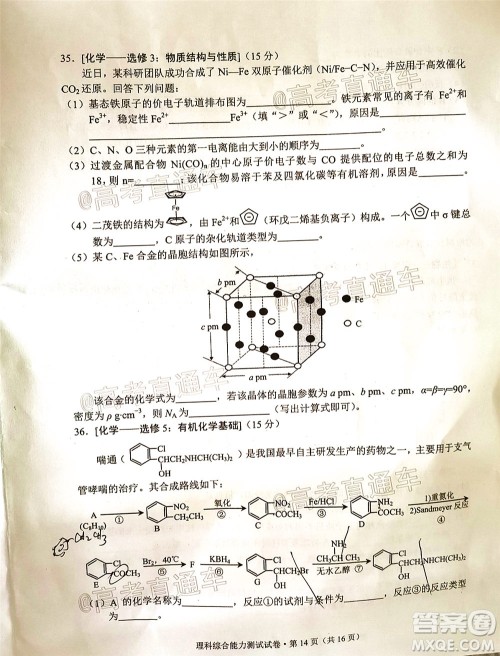 35．[化学——选修 3：物质结构与性质]（15 分）
近日，某科研团队成功合成了 Ni—Fe 双原子催化剂（Ni/Fe−C−N），并应用于高效催化
CO₂ 还原。回答下列问题：
（1）基态铁原子的价电子轨道排布图为____________。铁元素常见的离子有 Fe²⁺和
Fe³⁺，稳定性 Fe²⁺______Fe³⁺（填“＞”或“＜”），原因是
____________。
（2）C、N、O 三种元素的第一电离能由大到小的顺序为____________。
（3）过渡金属配合物 Ni(CO)n 的中心原子价电子数与 CO 提供配位的电子总数之和为
18，则 n=______；该化合物易溶于苯及四氯化碳等有机溶剂，原因是
____________。
（4）二茂铁的结构为 Fe，由 和 （环戊二烯基负离子）构成。一个 中 σ 键总
数为______，C 原子的杂化轨道类型为______。
（5）某 C、Fe 合金的晶胞结构如图所示，
b pm
c pm
a pm
Fe
C
该合金的化学式为______，若该晶体的晶胞参数为 a pm、b pm、c pm，α=β=γ=90°，
密度为 ρ g·cm⁻³，则 N_A 为____________（写出计算式）。
36．[化学——选修 5：有机化学基础]（15 分）
喘通（ Cl CHCH₂NHCH(CH₃)₂ OH ）是我国最早自主研发生产的药物之一，主要用于支气
管哮喘的治疗。其合成路线如下：
A (C₈H₁₀) ① NO₂ CH₂CH₃ B 氧化 ② NO₂ COCH₃ C Fe/HCl ③ NH₂ COCH₃ D 1)重氮化 2)Sandmeyer 反应 ④
CH₂CH₃
Cl COCH₃ E Br₂，40℃ ⑤ F KBH₄ ⑥ Cl CHCH₂Br OH G 无水乙醇 ⑦ Cl CHCH₂NHCH(CH₃)₂ OH
（1）A 的化学名称为______，反应①的试剂与条件为______，反应③的反应类型
理科综合能力测试试卷·第 14 页（共 16 页）
@高考直通车
答案圈